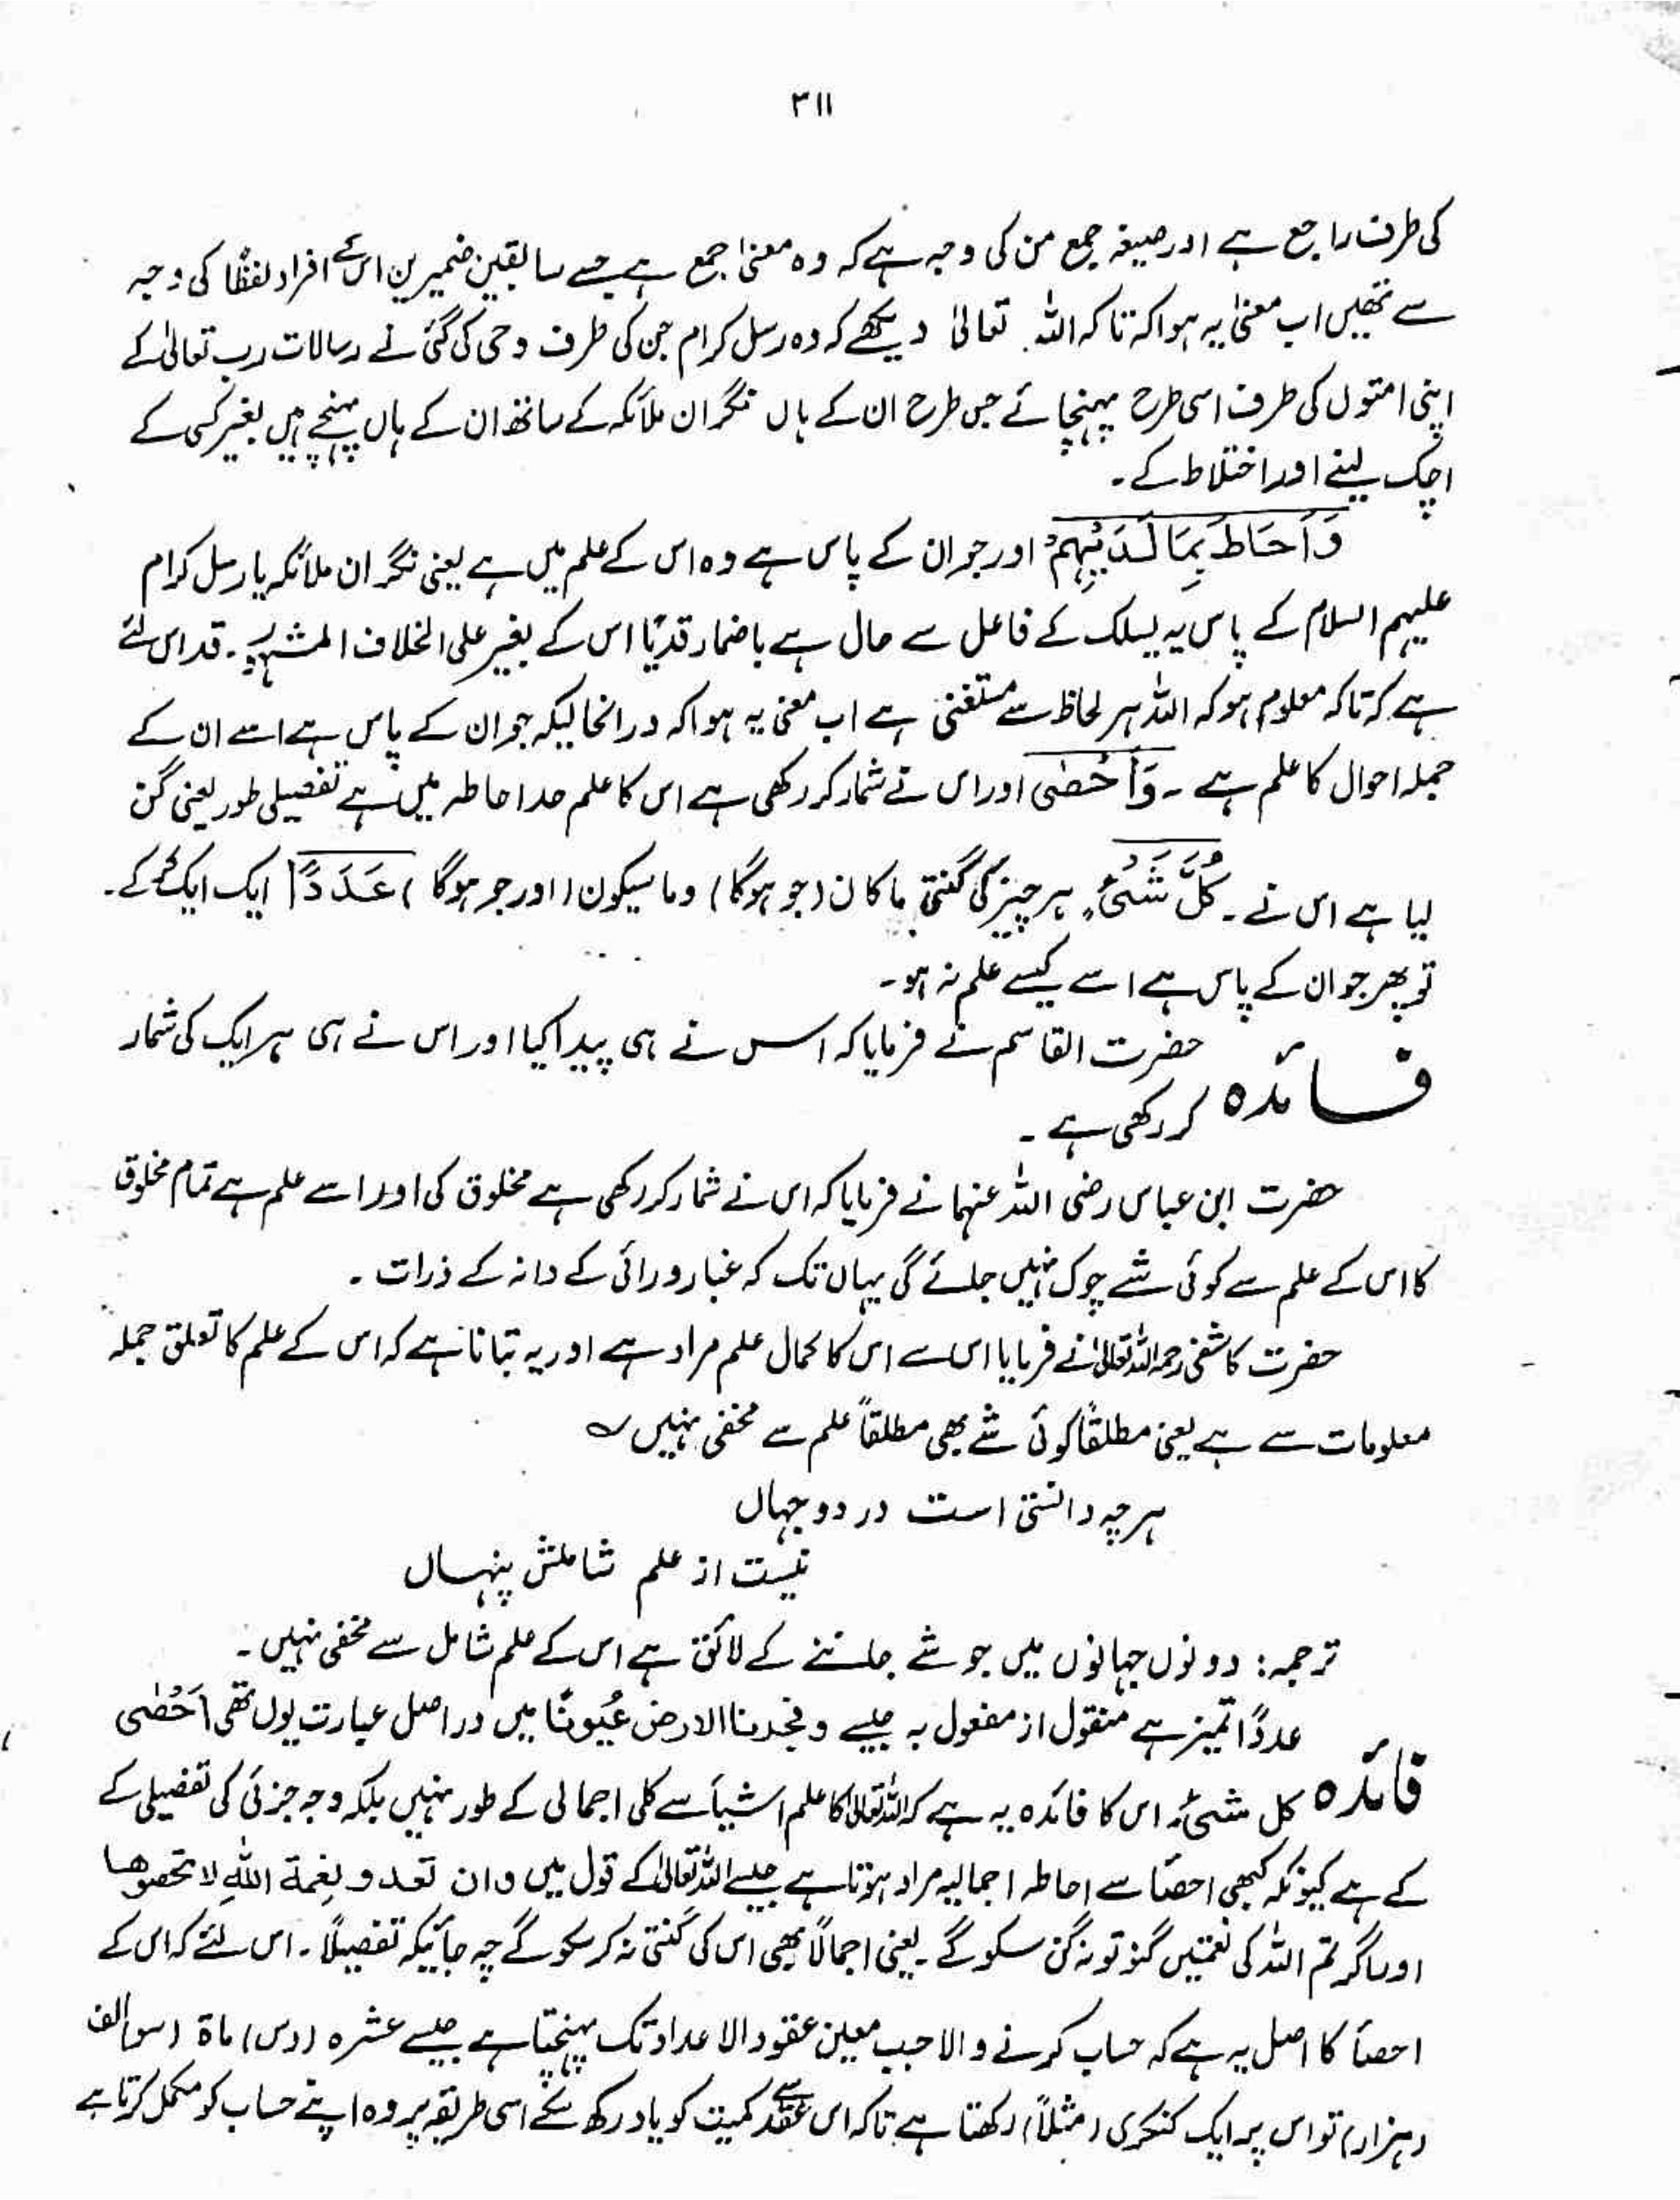 ۳۱۱
کی طرف راجع ہے اور صیغہ جمع من کی وجہ ہے کہ وہ معنیٰ جمع ہے جسے سابقین ضمیرین اس کے افراد لفظًا کی وجہ
سے تھیں اب معنیٰ یہ ہوا کہ تاکہ اللہ تعالیٰ دیکھے کہ وہ رسل کرام جن کی طرف وحی کی گئی نے رسالات رب تعالیٰ کے
اپنی امتوں کی طرف اسی طرح پہنچائے جس طرح ان کے ہاں نگران ملائکہ کے ساتھ ان کے ہاں پہنچے ہیں بغیر کسی کے
اچک لینے اور اختلاط کے۔
وَاَحَاطَ بِمَا لَدَیْہِمْ اور جو ان کے پاس ہے وہ اس کے علم میں ہے یعنی نگران ملائکہ یا رسل کرام
علیہم السلام کے پاس یہ یسلک کے فاعل سے حال ہے باضمار قد یا اس کے بغیر علی الخلاف المشہور۔ قد اس لئے
ہے کہ تاکہ معلوم ہو کہ اللہ ہر لحاظ سے مستغنی ہے اب معنیٰ یہ ہوا کہ درانحالیکہ جو ان کے پاس ہے اسے ان کے
جملہ احوال کا علم ہے ۔ وَاَحْصٰی اور اس نے شمار کر رکھی ہے اس کا علم حد احاطہ میں ہے تفصیلی طور یعنی گن
لیا ہے اس نے ۔ کُلَّ شَیْءٍ ہر چیز کی گنتی ما کان (جو ہوگا) وما سیکون (اور جو ہوگا) عَدَدًا ایک ایک کر کے۔
تو پھر جو ان کے پاس ہے اسے کیسے علم نہ ہو۔
فائدہ حضرت القاسم نے فرمایا کہ اس نے ہی پیدا کیا اور اس نے ہی ہر ایک کی شمار
کر رکھی ہے ۔
حضرت ابن عباس رضی اللہ عنہما نے فرمایا کہ اس نے شمار کر رکھی ہے مخلوق کی اور اسے علم ہے تمام مخلوق
کا اس کے علم سے کوئی شے چوک نہیں جائے گی یہاں تک کہ غبار و رائی کے دانہ کے ذرات ۔
حضرت کاشفی رحمہ اللہ تعالیٰ نے فرمایا اس سے اس کا کمال علم مراد ہے اور یہ بتانا ہے کہ اس کے علم کا تعلق جملہ
معلومات سے ہے یعنی مطلقًا کوئی شے بھی مطلقاً علم سے مخفی نہیں ؎
ہر چہ دانستنی است در دو جہاں
نیست از علم شاملش پنہاں
ترجمہ: دونوں جہانوں میں جو شے جاننے کے لائق ہے اس کے علم شامل سے مخفی نہیں ۔
فائدہ عددًا تمیز ہے منقول از مفعول بہ جیسے وفجرنا الارض عُیُونًا میں دراصل عبارت یوں تھی اَحْصٰی
کل شیءٍ اس کا فائدہ یہ ہے کہ اللہ تعالیٰ کا علم اشیأ سے کلی اجمالی کے طور نہیں بلکہ وجہ جزئی کی تفصیلی کے
کے ہے کیونکہ کبھی احصأ سے احاطہ اجمالیہ مراد ہوتا ہے جیسے اللہ تعالیٰ کے قول میں وان تعدو نِعْمۃ اللہِ لا تحصوھا
اور اگر تم اللہ کی نعمتیں گنو تو نہ گن سکو گے ۔ یعنی اجمالاً بھی اس کی گنتی نہ کر سکو گے چہ جائیکہ تفصیلاً ۔ اس لئے کہ اس کے
احصأ کا اصل یہ ہے کہ حساب کرنے والا جب معین عقود الاعداد تک پہنچتا ہے جیسے عشرہ (دس) ماۃ (سو) الف
(ہزار) تو اس پر ایک کنکری (مثلاً) رکھتا ہے تاکہ اس عقد سے کمیت کو یاد رکھ سکے اسی طریقہ پر وہ اپنے حساب کو مکمل کرتا ہے